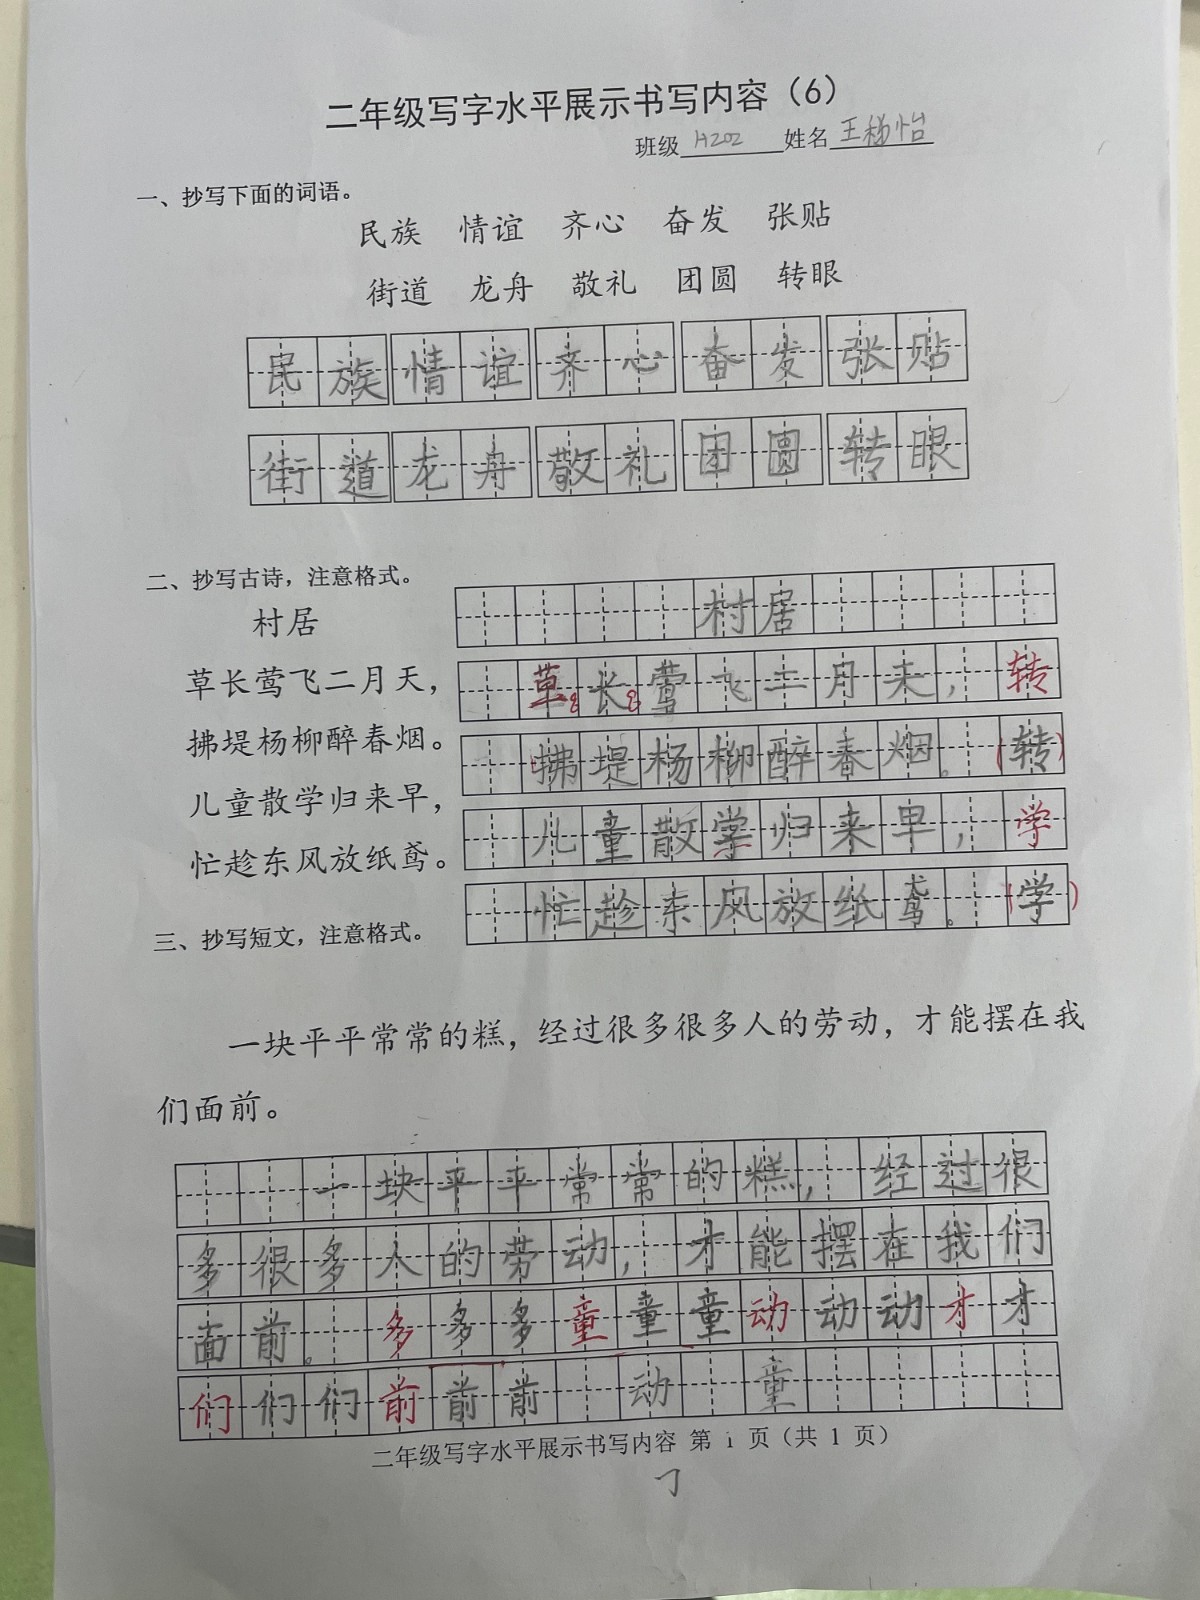 二年级写字水平展示书写内容（6）
班级 H202 姓名 王梯怡
一、抄写下面的词语。
民族 情谊 齐心 奋发 张贴
街道 龙舟 敬礼 团圆 转眼
民族 情谊 齐心 奋发 张贴
街道 龙舟 散礼 团圆 转眼
二、抄写古诗，注意格式。
村居
草长莺飞二月天，
拂堤杨柳醉春烟。
儿童散学归来早，
忙趁东风放纸鸢。
村居
草长莺飞二月来， 转
拂堤杨柳醉春烟。（转）
儿童散学归来早， 学
忙趁东风放纸鸢。（学）
三、抄写短文，注意格式。
一块平平常常的糕，经过很多很多人的劳动，才能摆在我
们面前。
一块平平常常的糕，经过很
多很多人的劳动，才能摆在我们
面前。多多多童童童动动动才才
们们们前前前 动 童
二年级写字水平展示书写内容 第 1 页（共 1 页）